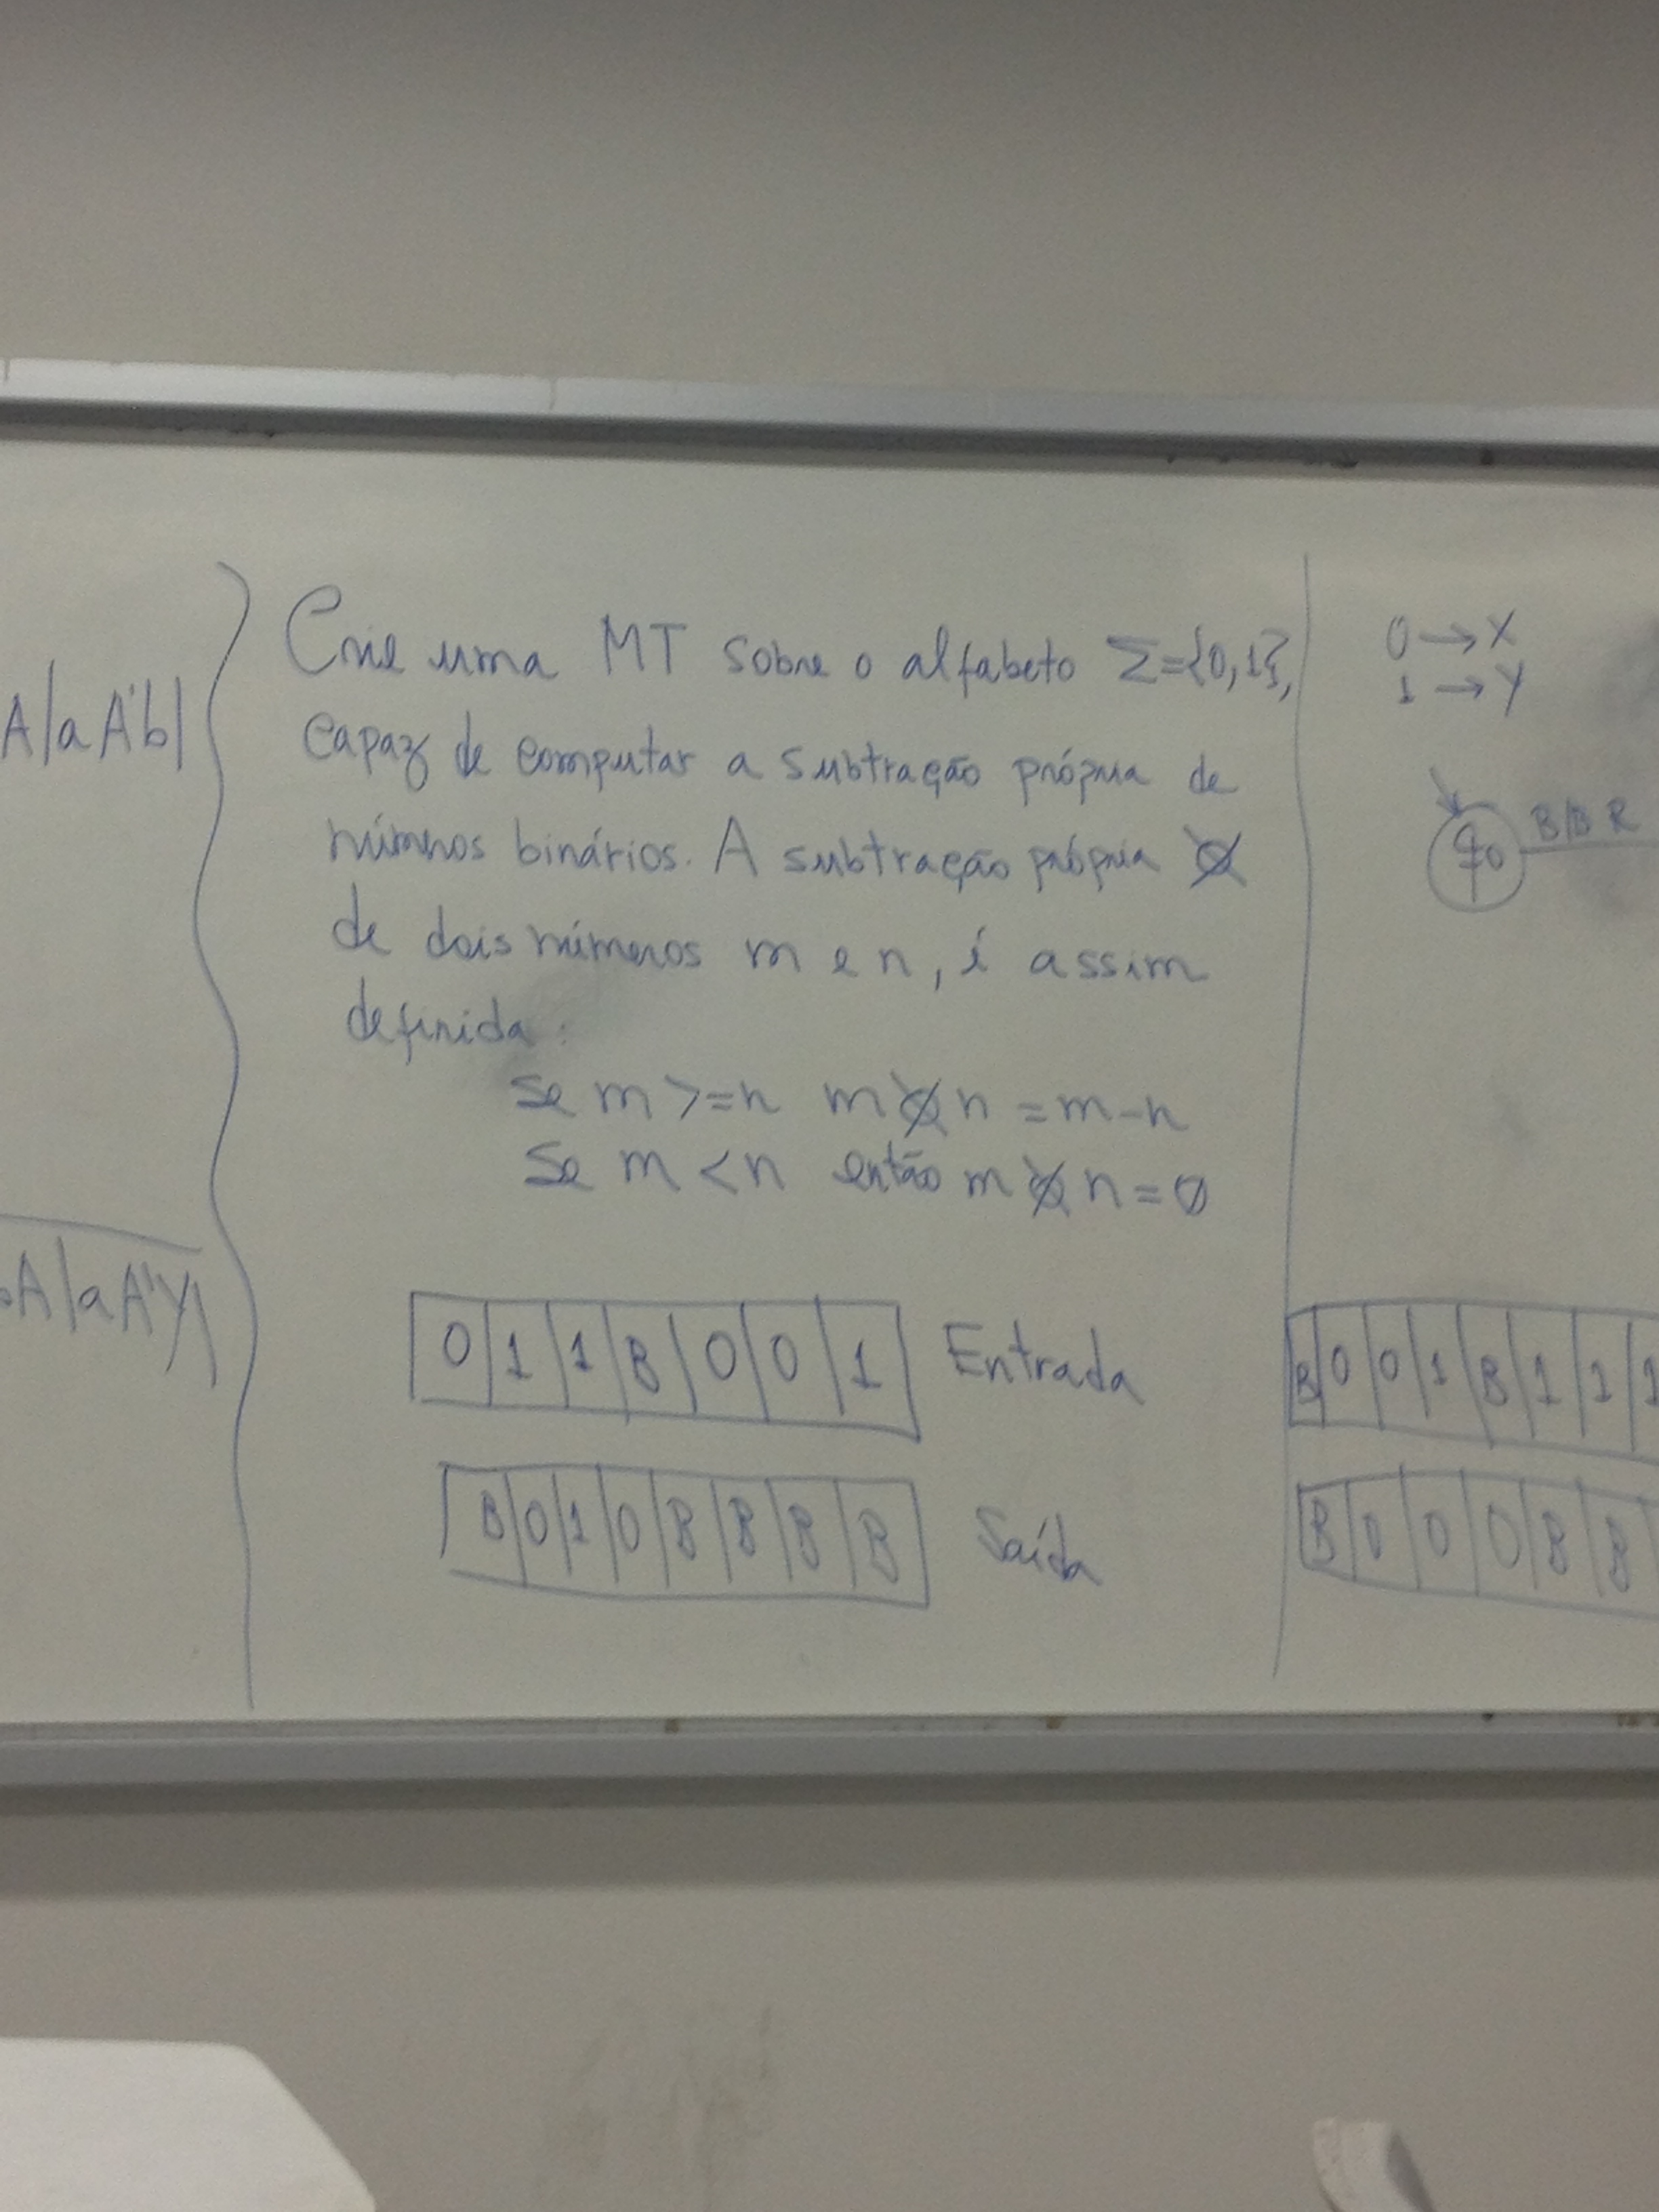 A|aA'b|
A|aA'Y|
Crie uma MT sobre o alfabeto Σ={0,1},
capaz de computar a subtração própria de
números binários. A subtração própria ⦻
de dois números m e n, é assim
definida:
se m >= n m ⦻ n = m-n
Se m < n então m ⦻ n = 0
0 1 1 B 0 0 1 Entrada
B 0 1 0 B B B B Saída
0 → X
1 → Y
q0 B/B R
B 0 0 1 B 1 1 1
B 0 0 0 B B